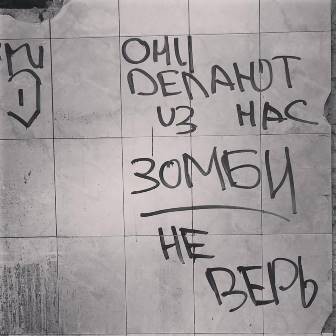 ОНИ
ДЕЛАЮТ
ИЗ НАС
ЗОМБИ
НЕ
ВЕРЬ